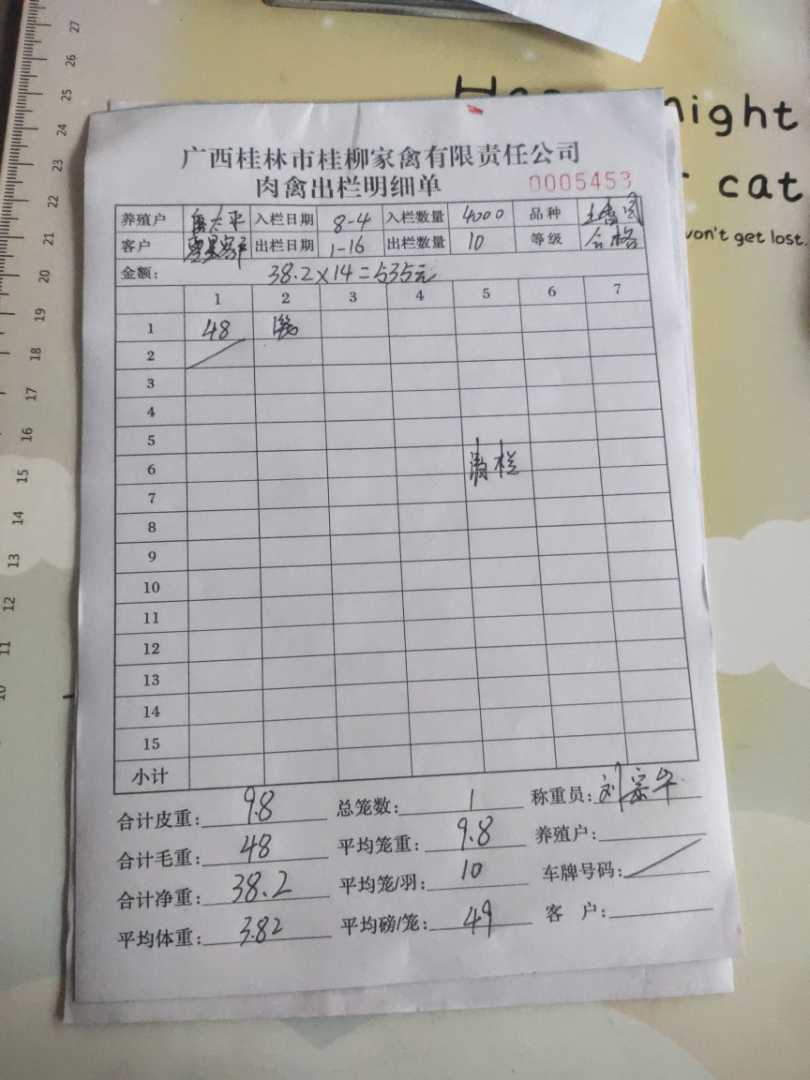 27
26
25
24
23
22
21
20
19
18
17
16
15
14
13
12
11
night
cat
won't get lost.
广西桂林市桂柳家禽有限责任公司
肉禽出栏明细单 0005453
养殖户 入栏日期 8-4 入栏数量 4000 品种
客户 出栏日期 1-16 出栏数量 10 等级 合格
金额: 38.2×14=535元
1 2 3 4 5 6 7
1 48
2
3
4
5
6 栏
7
8
9
10
11
12
13
14
15
小计
合计皮重: 9.8 总笼数: 1 称重员: 刘宗华
合计毛重: 48 平均笼重: 9.8 养殖户:
合计净重: 38.2 平均笼/羽: 10 车牌号码:
平均体重: 3.82 平均磅/笼: 49 客 户: